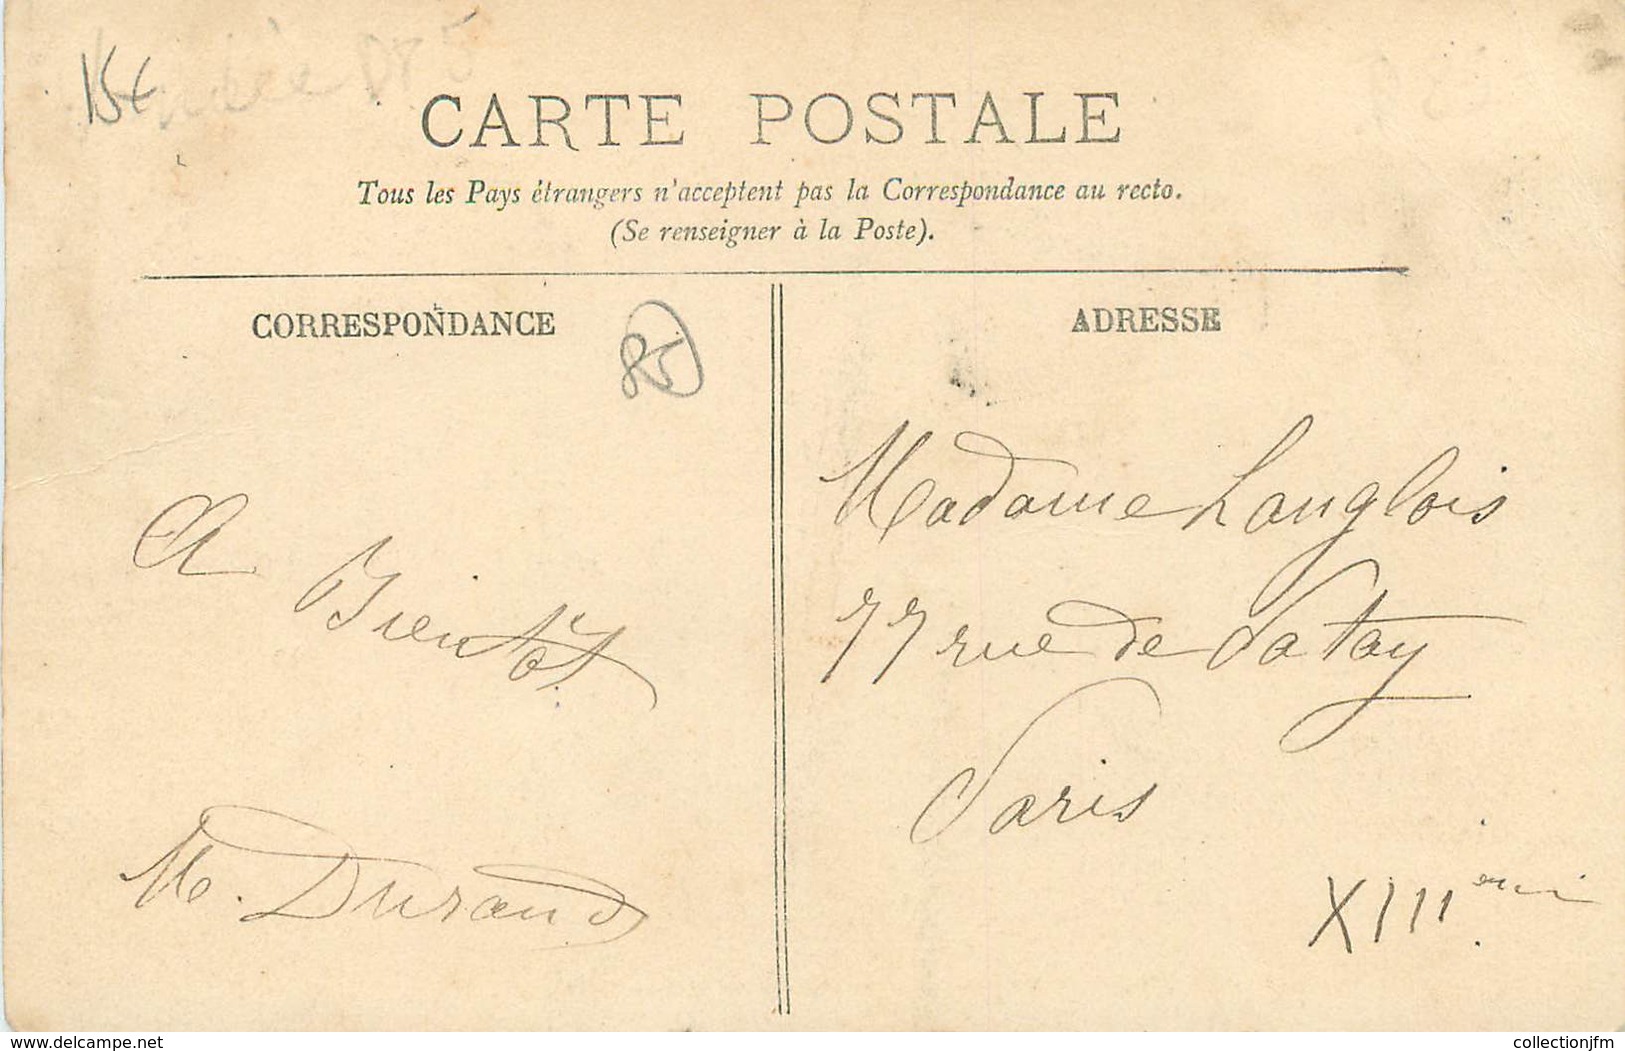 15€
CARTE POSTALE
Tous les Pays étrangers n'acceptent pas la Correspondance au recto.
(Se renseigner à la Poste).
CORRESPONDANCE
85
A
Bientôt
M. Durand
ADRESSE
Madame Langlois
77 rue de Patay
Paris
XIIIème
www.delcampe.net
collectionjfm